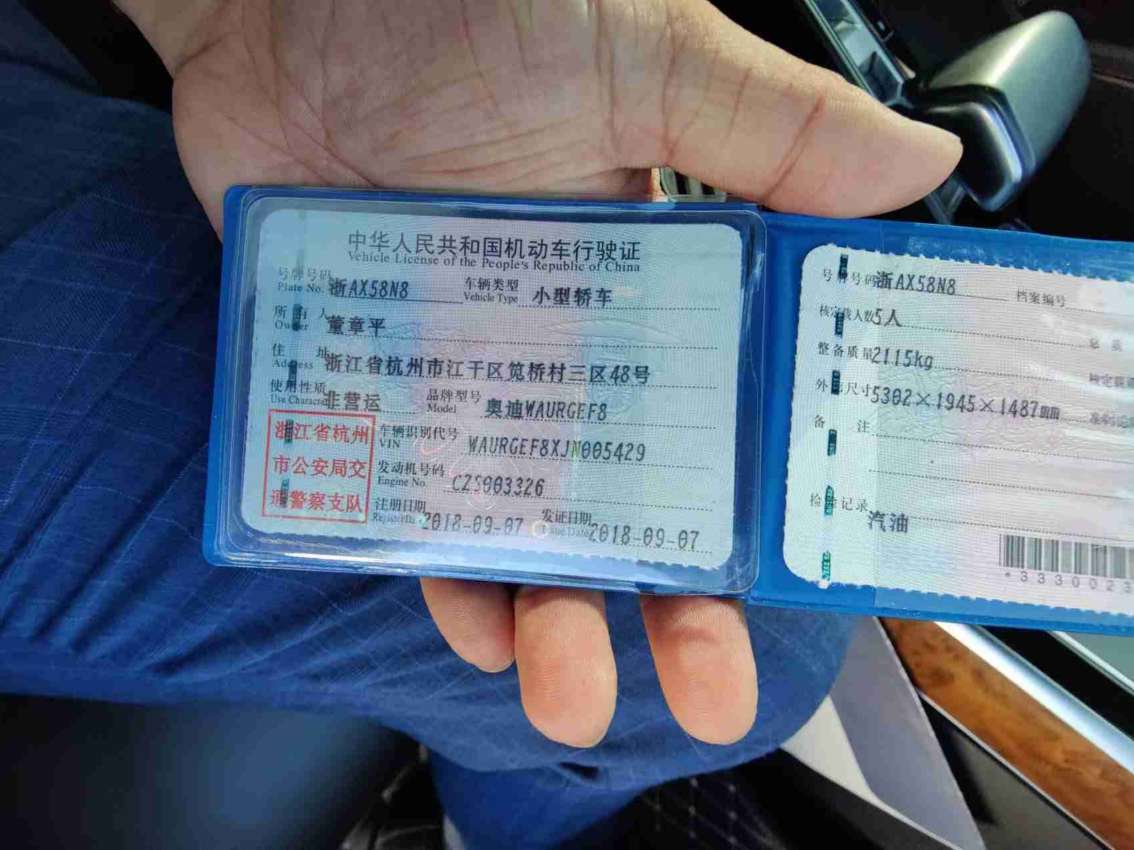 中华人民共和国机动车行驶证
Vehicle License of the People's Republic of China
号牌号码 浙AX58N8 车辆类型 小型轿车
Plate No. Vehicle Type
所有人 董章平
Owner
住址 浙江省杭州市江干区笕桥村三区48号
Address
使用性质 非营运 品牌型号 奥迪WAURGEF8
Use Character Model
浙江省杭州
市公安局交
通警察支队
车辆识别代号 WAURGEF8XJN005429
VIN
发动机号码 CZS003326
Engine No.
注册日期 2018-09-07 发证日期 2018-09-07
号牌号码 浙AX58N8 档案编号
核定载人数 5人 总质
整备质量 2115kg 核定载
外廓尺寸 5302×1945×1487mm
备注
检验记录
汽油
*3330023